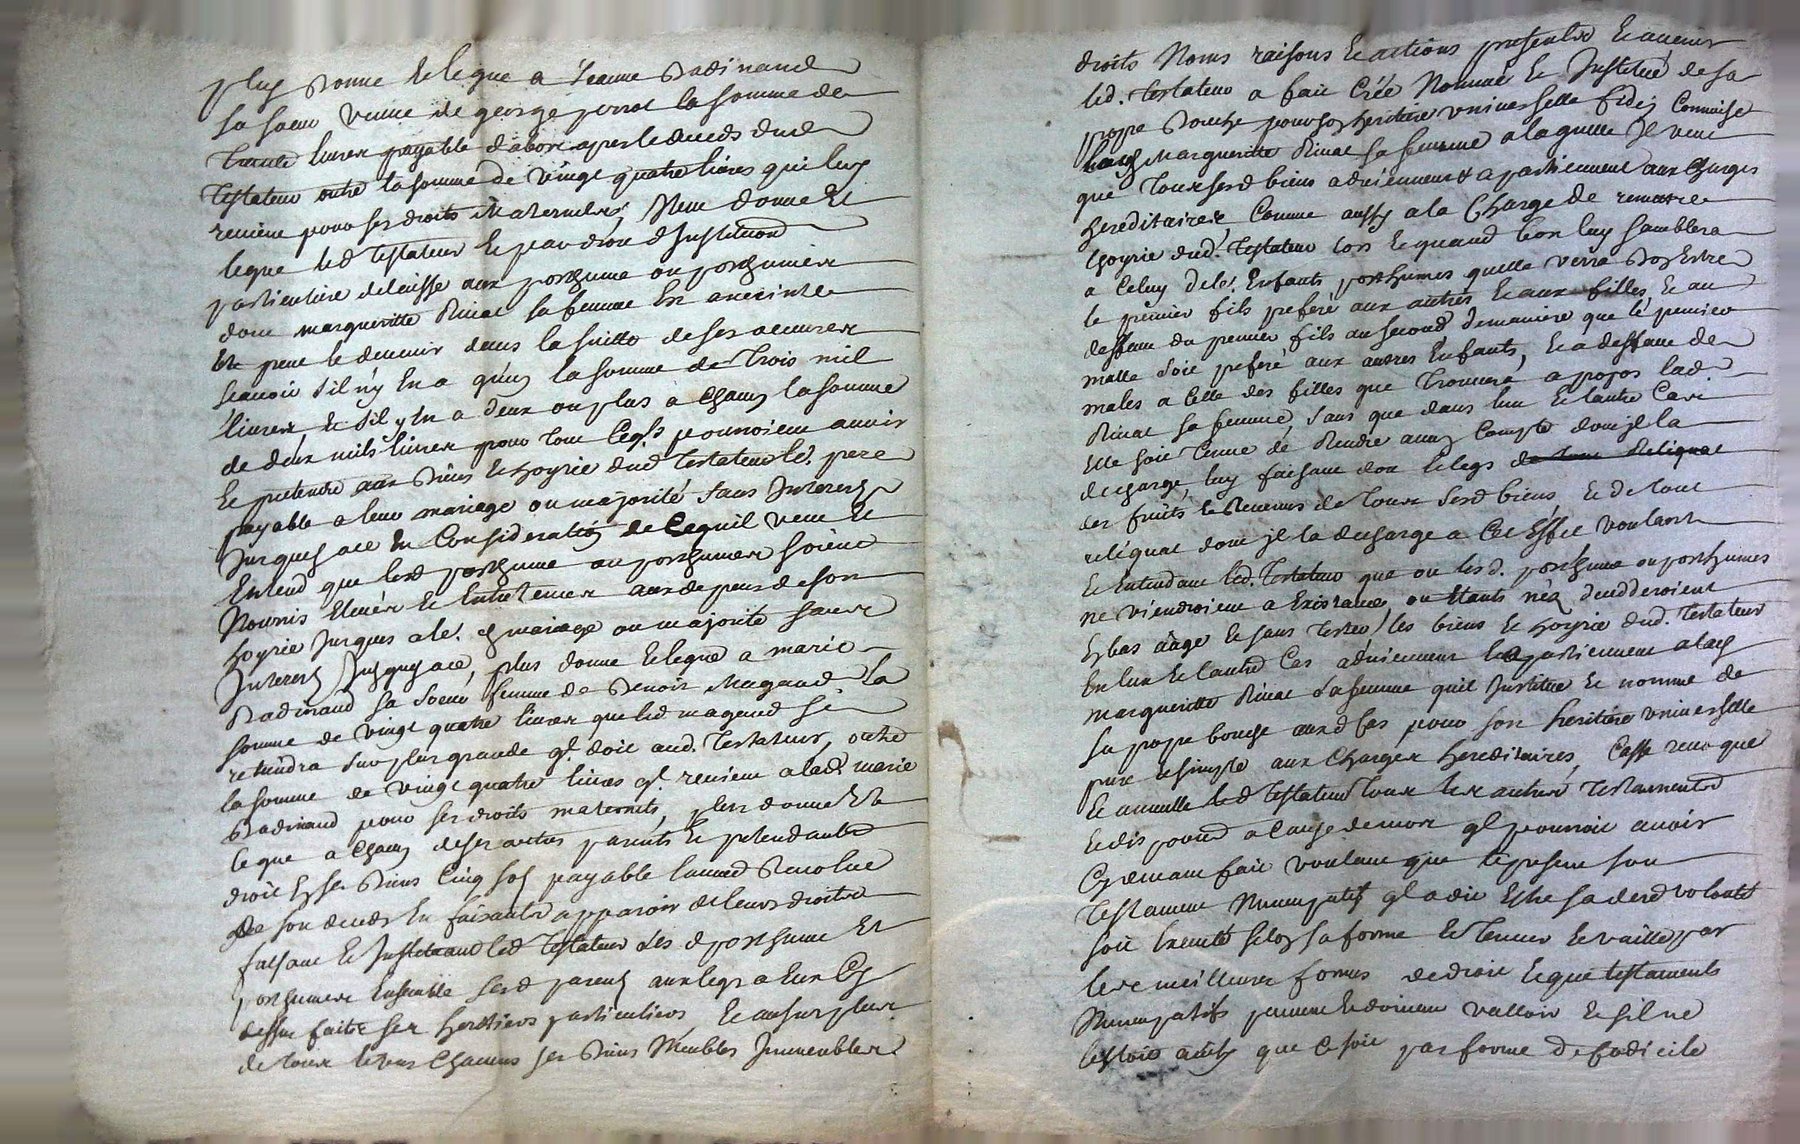 plus donne et legue a Jeanne Badinand
sa soeur veuve de george perrot la somme de
trente livres payable d'abord apres le deceds dud
Testateur outre la somme de vingt quatre livres qui luy
revient pour ses droits Maternels, Item donne et
legue led Testateur et par droit d'Institution
particulière delaisse aux posthume ou posthumes
dont margueritte Rivat sa femme est enceinte
ou peut le devenir dans la suitte de ses oeuvres
scavoir s'il n'y En a qu'un la somme de Trois mil
livres et s'il y En a deux ou plus a chacun la somme
de deux mils livres pour tout ce qu'ils pourroient avoir
et pretendre aux Biens et hoyrie dud Testateur led. pere
payable a leur mariage ou majorité sans Interests
Jusques a ce En Consideration de Ce qu'il veut et
Entend que lesd posthume ou posthumes soient
Nourris Elevés et Entretenus aux depens de son
hoyrie Jusques a led. mariage ou majorité sans
Interests Jusques a ce, plus donne et legue a marie
Badinaud sa soeur femme de Benoit Magaud la
somme de vingt quatre livres que led magaud
retiendra sur plus grande ql. doit aud. Testateur, outre
la somme de vingt quatre livres ql. revient a lad. marie
Badinaud pour ses droits maternels, plus donne et
legue a chacun de ses autres parents et pretendants
droit En ses Biens Cinq sols payable l'année Revolue
de son deceds En faisants apparoir de leurs droits
faisant et Instituant led Testateur lesd posthume et
posthumes Ensemble sesd parents aux legs a Eux Cy
dessus faits ses heritiers particuliers Et au surplus
de tous et uns chacuns ses Biens Meubles Immeubles
droits Noms raisons et actions presents et avenir
led. Testateur a fait Créé Nommé et Institué de sa
propre Bouche pour son heritiere universelle fidei Commise
lad. Margueritte Rivat sa femme a laquelle Il veut
que Tous sesd biens adviennent & apartiennent aux Charges
hereditaires, Comme aussy a la Charge de remettre
hoyrie dud. Testateur lors et quand bon luy semblera
a Celuy desd. Enfants posthumes quelle verra Bon Estre
le premier fils preferé aux autres et aux filles, et au
deffaut du premier fils au second de maniere que le premier
malle soit preferé aux autres Enfants, et a deffaut de
males a Celle des filles que Trouvera a propos lad.
Rivat sa femme, sans que dans l'un et l'autre Cas
elle soit Tenue de Rendre aucun Compte dont jl la
decharge, luy faisant don et legs
des fruits et Revenus de tous sesd biens, et de tout
reliquat dont jl la decharge a Cet Effet voulant
et Entendant led. Testateur que ou lesd. posthume ou posthumes
ne viendroient a Existance, ou Etants nés decedderoient
En bas aage et sans Tester, les biens et hoyrie dud. Testateur
En l'un et l'autre Cas adviennent & apartiennent a lad.
Margueritte Rivat sa femme qu'il Institue et nomme de
sa propre bouche auxd Cas pour son heritière universelle
pure et simple aux Charges hereditaires, Casse revoque
et annulle led Testateur tous les autres Testaments
et dispositions a Cause de mort ql pourroit avoir
Cy devant fait voulant que le present son
Testament Nuncupatif ql a dit Estre sa dernd volonté
soit Executé selon sa forme et Teneur et vaille par
les meilleures formes de droit et que testaments
Nuncupatifs peuvent et doivent valloir et s'il ne
que Ce soit par forme de Codicile